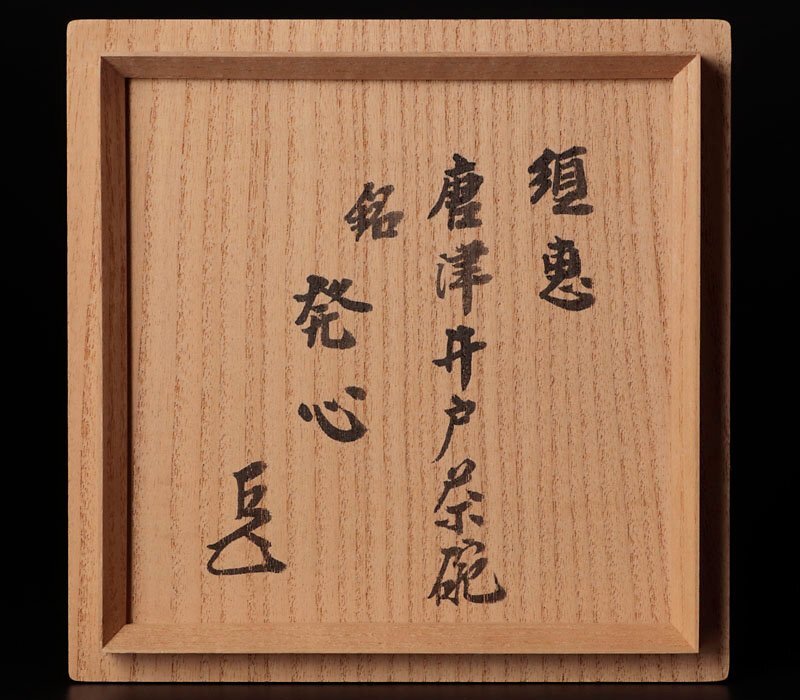 須恵
唐津井戸茶碗
銘
発心